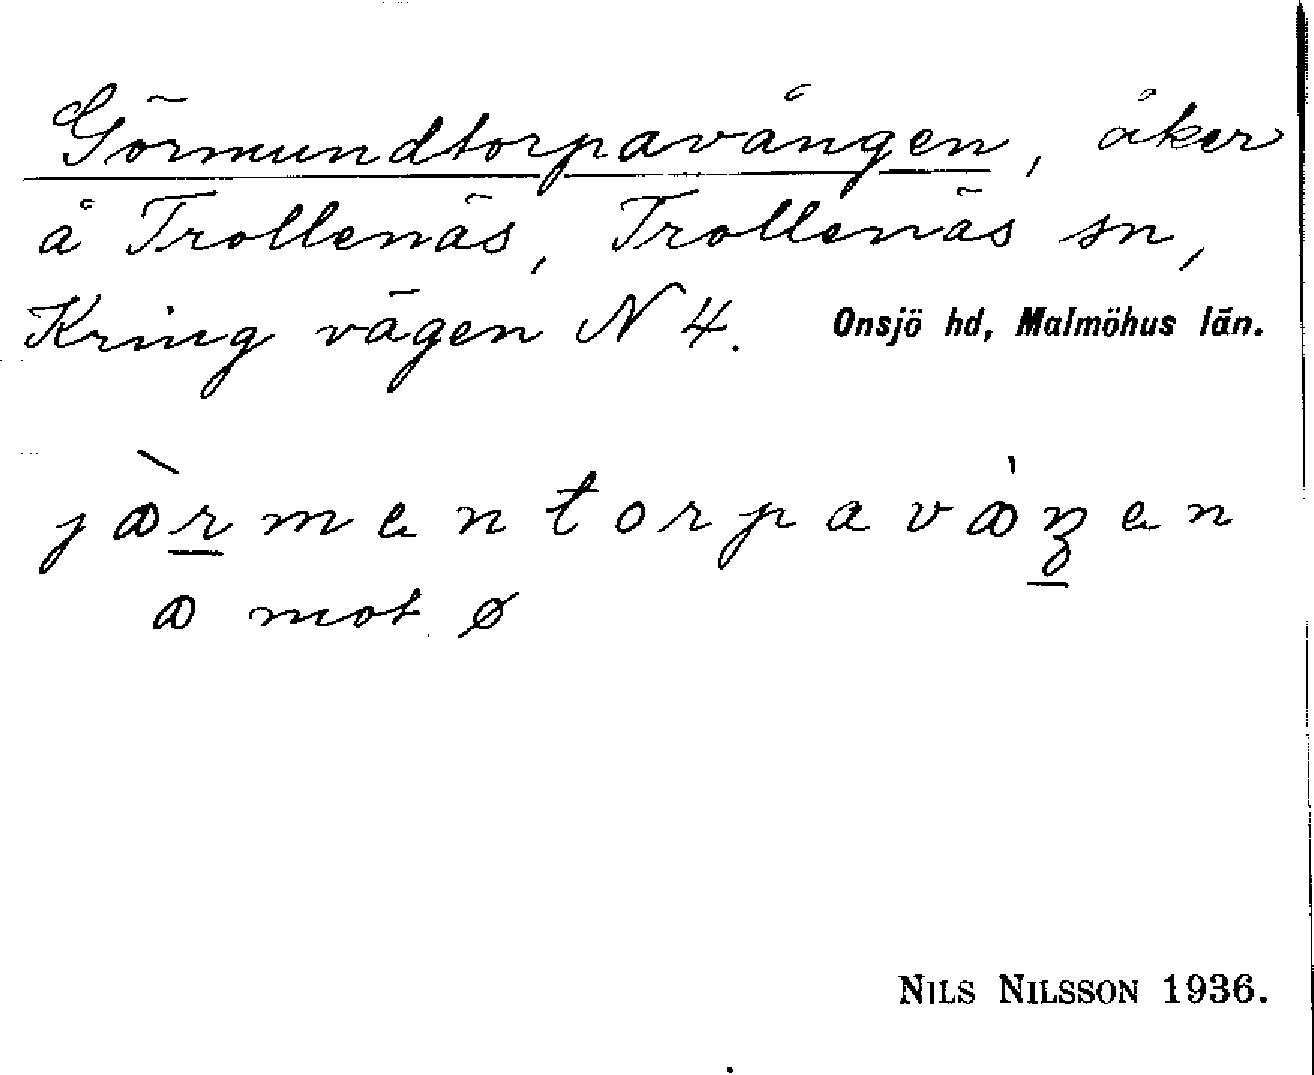 Görmundtorpavången, åker
å Trollenäs, Trollenäs sn,
Kring vägen N 4. Onsjö hd, Malmöhus län.
mot ø
NILS NILSSON 1936.